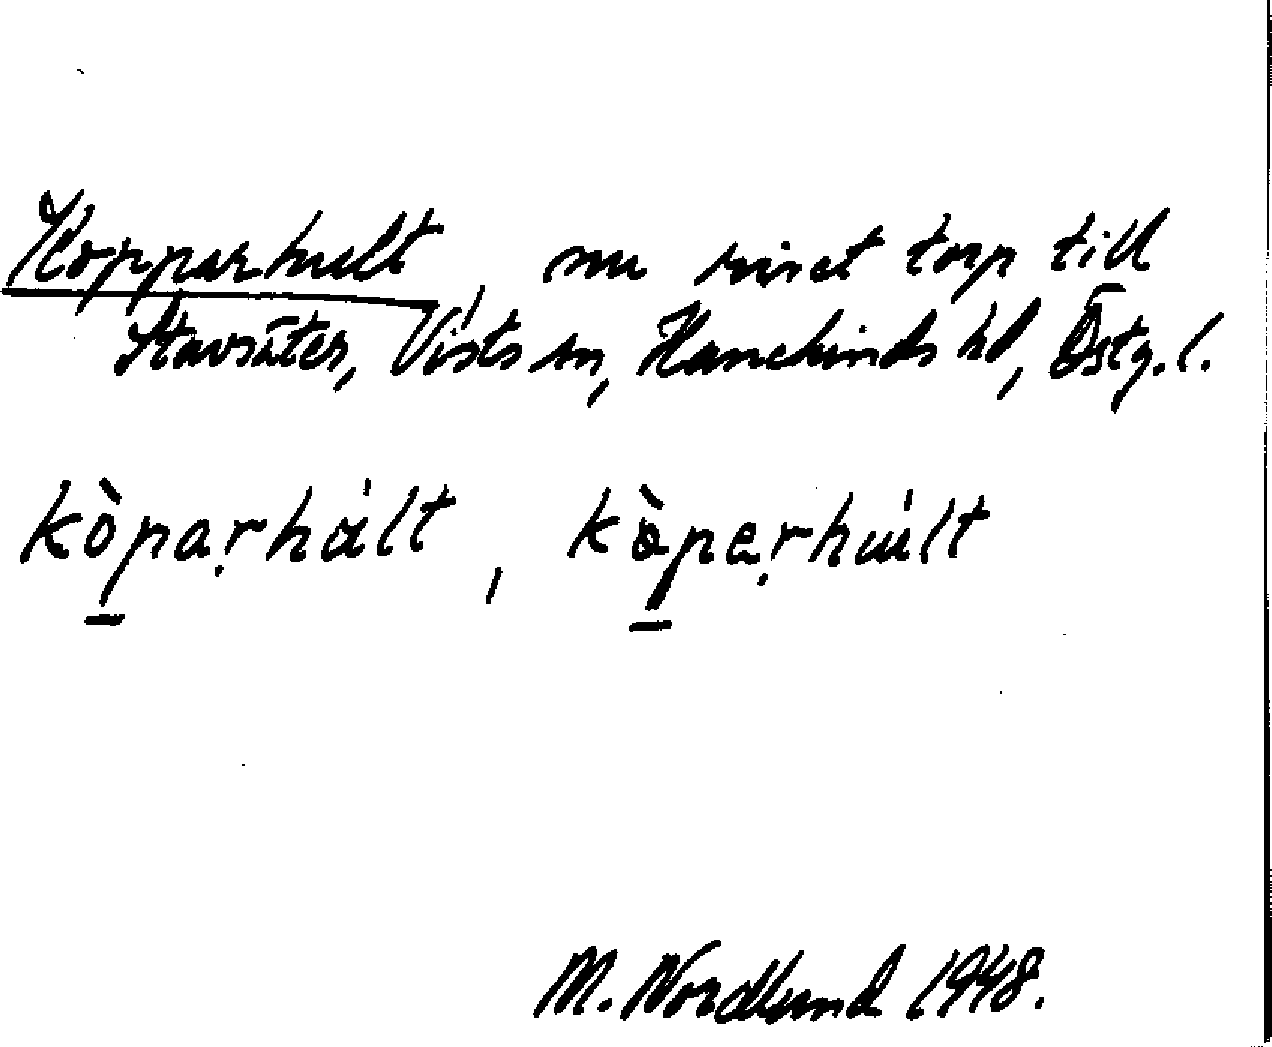 Kopparhult, nu rivet torp till
Stavsäter, Vists sn, Hanekinds hd, Östg. l.
kòpạrhált, kòpẹrhúlt
M. Nordlund 1948.